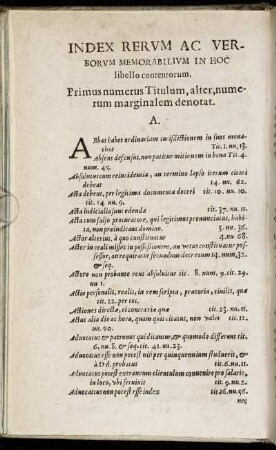 INDEX RERVM AC VER-
BORVM MEMORABILIVM IN HOC
libello contentorum,
Primus numerus Titulum, alter, nume-
rum marginalem denotat.
A.
ABbas habet ordinariam iurisdictionem in suos mona-
chos Tit. 1. nu. 13.
Absens defensus, non patitur missionem in bona Tit. 4.
num. 45.
Absolutus cum reincidentia, an termino lapso iterum citari
debeat 14. nu. 62.
Acta debent, per legitima documenta doceri tit. 10. nu. 10.
tit. 14 nu. 9.
Acta iudicialia sunt edenda tit. 37. nu. 11.
Acta cum falso procuratore, qui legitimus pronunciatus, habi-
ta, non præiudicant domino. 5. nu. 36.
Actor alterius, à quo constituatur 4. nu. 68.
Actor in reali missus in possessionem, an verus constituatur pos-
sessor, an requiratur secundum decretum 14. num. 32.
& seq.
Actore non probante reus absoluitur tit. 8. num. 9. tit. 29.
nu 1.
Actio personalis, realis, in rem scripta, prætoria, ciuilis, quæ
tit. 22. per tot.
Actiones directæ, et contrariæ quæ tit. 23. nu. 11.
Actus alia die ac hora, quam quis citatus, non valet tit. 12.
nu. 20.
Aduocatus & patronus qui dicantur, & quomodo different tit.
6. nu. 8. & seq. tit. 41. nu. 23.
Aduocatus esse non potest nisi per quinquennium studuerit, &
à Dd. probatus tit. 6. nu. 11.
Aduocatus potest extra forum clientulum conuenire pro salario,
in loco, vbi seruiuit tit. 9. nu. 2.
Aduocatus non potest esse iudex tit 26. nu. 56.
nec